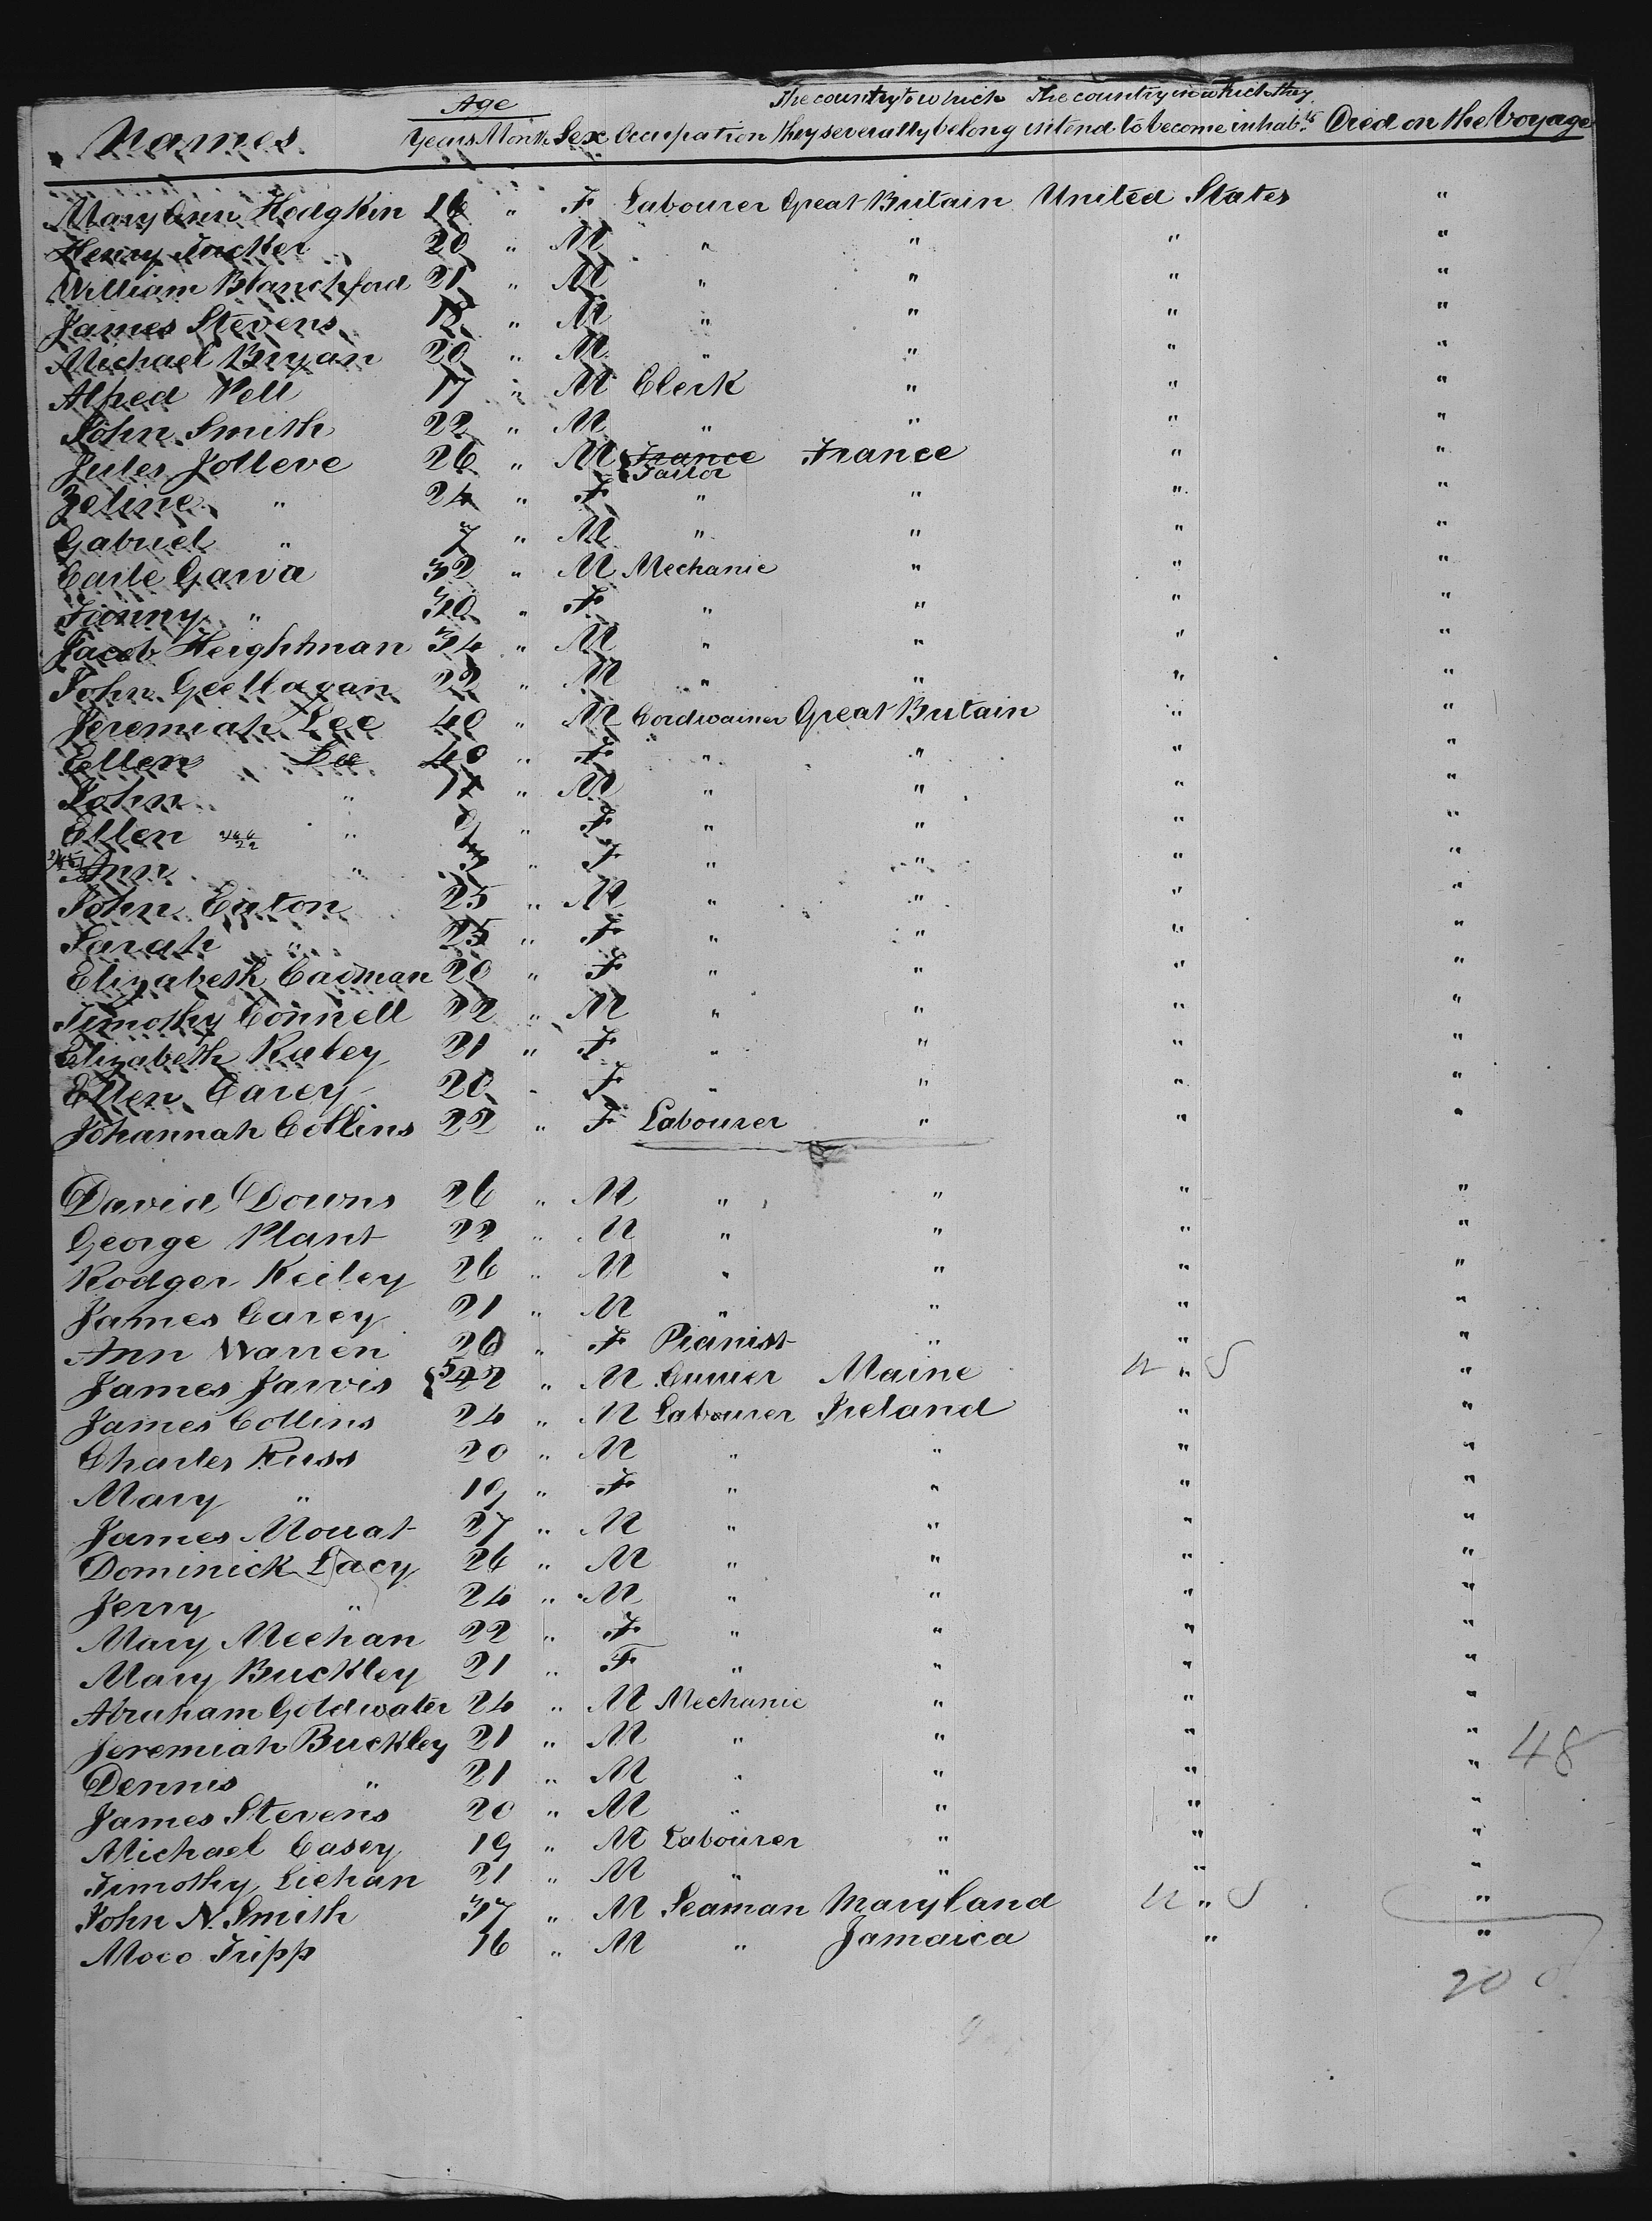 Age The country to which The country in which they
Names Years Month Sex Occupation they severally belong intend to become inhabts Died on the Voyage
Mary Ann Hodgkin 16 " F Labourer Great Britain United States "
Henry Tucker 20 " M " " " "
William Blanchford 21 " M " " " "
James Stevens 18 " M " " " "
Michael Bryan 20 " M " " " "
Alfred Pell 17 " M Clerk " " "
John Smith 22 " M " " " "
Jules Jolleve 26 " M France France " "
Tailor
Zeline " 24 " F " " " "
Gabriel " 7 " M " " " "
Earle Garva 32 " M Mechanic " " "
Fanny " 30 " F " " " "
Jacob Heightman 34 " M " " " "
John Geettagan 22 " M " " " "
Jeremiah Lee 40 " M Cordwainer Great Britain " "
Ellen Lee 40 " F " " " "
John " " M " " " "
Ellen " " F " " " "
Ann " 3 " F " " " "
John Eaton 25 " M " " " "
Sarah " 25 " F " " " "
Elizabeth Cadman 20 " F " " " "
Timothy Connell 22 " M " " " "
Elizabeth Ruley 21 " F " " " "
Ellen Carey 20 " F " " " "
Johannah Collins 22 " F Labourer " " "
David Downs 26 " M " " " "
George Plant 22 " M " " " "
Rodger Keiley 26 " M " " " "
James Carey 21 " M " " " "
Ann Warren 20 " F Pianist " " "
James Jarvis 22 " M Currier Maine U " S "
James Collins 24 " M Labourer Ireland " "
Charles Russ 20 " M " " " "
Mary " 19 " F " " " "
James Mouat 27 " M " " " "
Dominick Lacy 26 " M " " " "
Jerry " 24 " M " " " "
Mary Meehan 22 " F " " " "
Mary Buckley 21 " F " " " "
Abraham Goldwater 24 " M Mechanic " " "
Jeremiah Buckley 21 " M " " " "
Dennis " 21 " M " " " " 48
James Stevens 20 " M " " " "
Michael Casey 19 " M Labourer " " "
Timothy Liehan 21 " M " " " "
John N. Smith 37 " M Seaman Maryland U " S "
Moco Tripp 16 " M " Jamaica " "
200